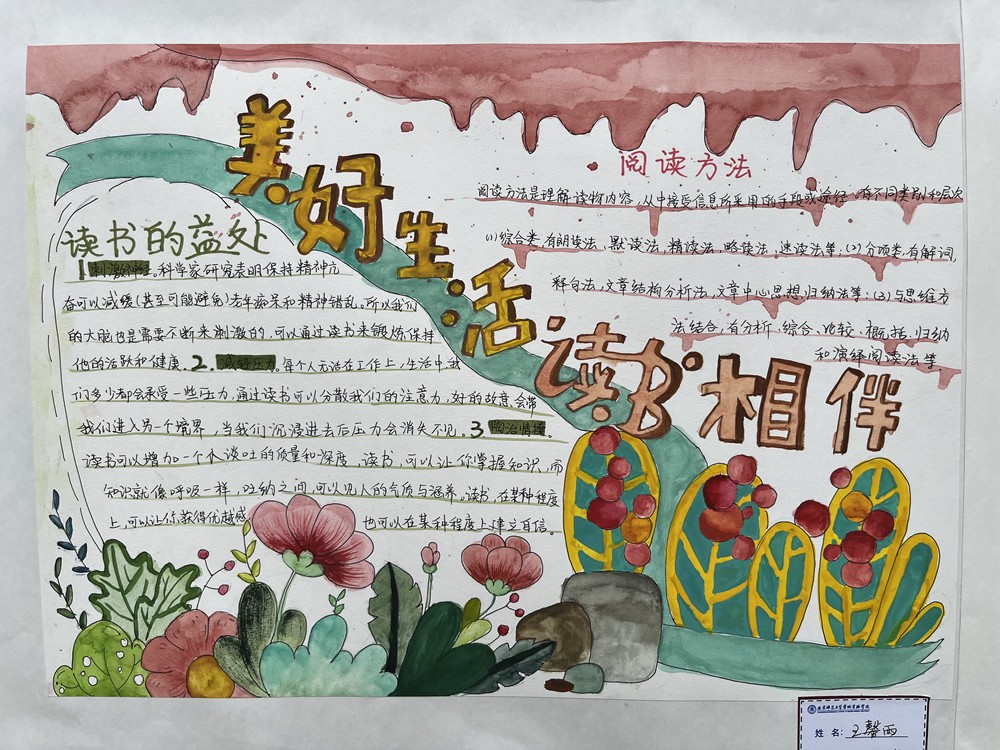 美好生活
读书相伴
读书的益处
1刺激神经。科学家研究表明保持精神亢
奋可以减缓(甚至可能避免)老年痴呆和精神错乱。所以我们
的大脑也是需要不断来刺激的,可以通过读书来锻炼保持
他的活跃和健康。2.减轻压力。每个人无论在工作上,生活中我
们多少都会承受一些压力,通过读书可以分散我们的注意力,好的故意会带
我们进入另一个境界,当我们沉浸进去后压力会消失不见。3陶冶情操。
读书可以增加一个人谈吐的质量和深度,读书,可以让你掌握知识,而
知识就像呼吸一样,吐纳之间,可以见人的气质与涵养,读书,在某种程度
上,可以让你获得优越感 也可以在某种程度上建立自信。
阅读方法
阅读方法是理解读物内容,从中接受信息所采用的手段或途径,有不同类别和层次
(1)综合类,有朗读法、默读法,精读法,略读法,速读法等,(2)分项类,有解词,
释句法,文章结构分析法,文章中心思想,归纳法等:(3)与思维方
法结合,有分析,综合,比较,概括,归纳
和演绎阅读法等
姓名:王馨西